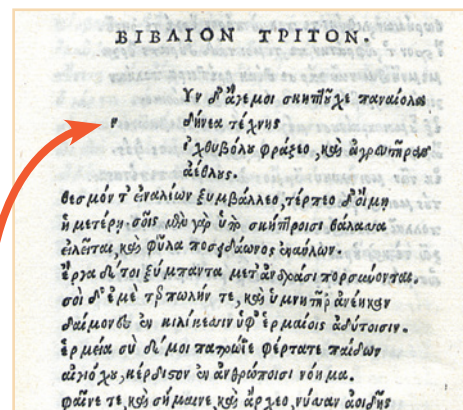 ΒΙΒΛΙΟΝ ΤΡΙΤΟΝ.
Υν δ' ἄγεμοι σκηπτοῦχε παναίολα
ν δήνεα τέχνης
ἰχθυβόλου φράζεο, καὶ ἀγρευτῆρας
ἀέθλους.
θεσμόν τ' ἐναλίων ξυμβάλλεο, τέρπεο δ' οἴμη
ἡμετέρη· σοῖς μὲν γὰρ ὑπὸ σκήπτροισι θάλασσα
εἰλεῖται, καὶ φῦλα ποσειδάωνος ἐναύλων.
ἔργα δέ τοι ξύμπαντα μετ' ἀνδράσι πορσαύονται.
σοὶ δ' ἐμὲ τερπωλήν τε, καὶ ὑμνητῆρ' ἀνέηκαν
δαίμονες ἐν κιλίκεσσιν ὑφ' ἑρμαίοις ἀδύτοισιν.
ἑρμεία σὺ δέ μοι πατρώϊε φέρτατε παίδων
αἰγιόχου, κέρδιστον ἐν ἀνθρώποισι νόημα.
φαῖνέ τε καὶ σήμαινε καὶ ἄρχεο, νύσσαν ἀοιδῆς